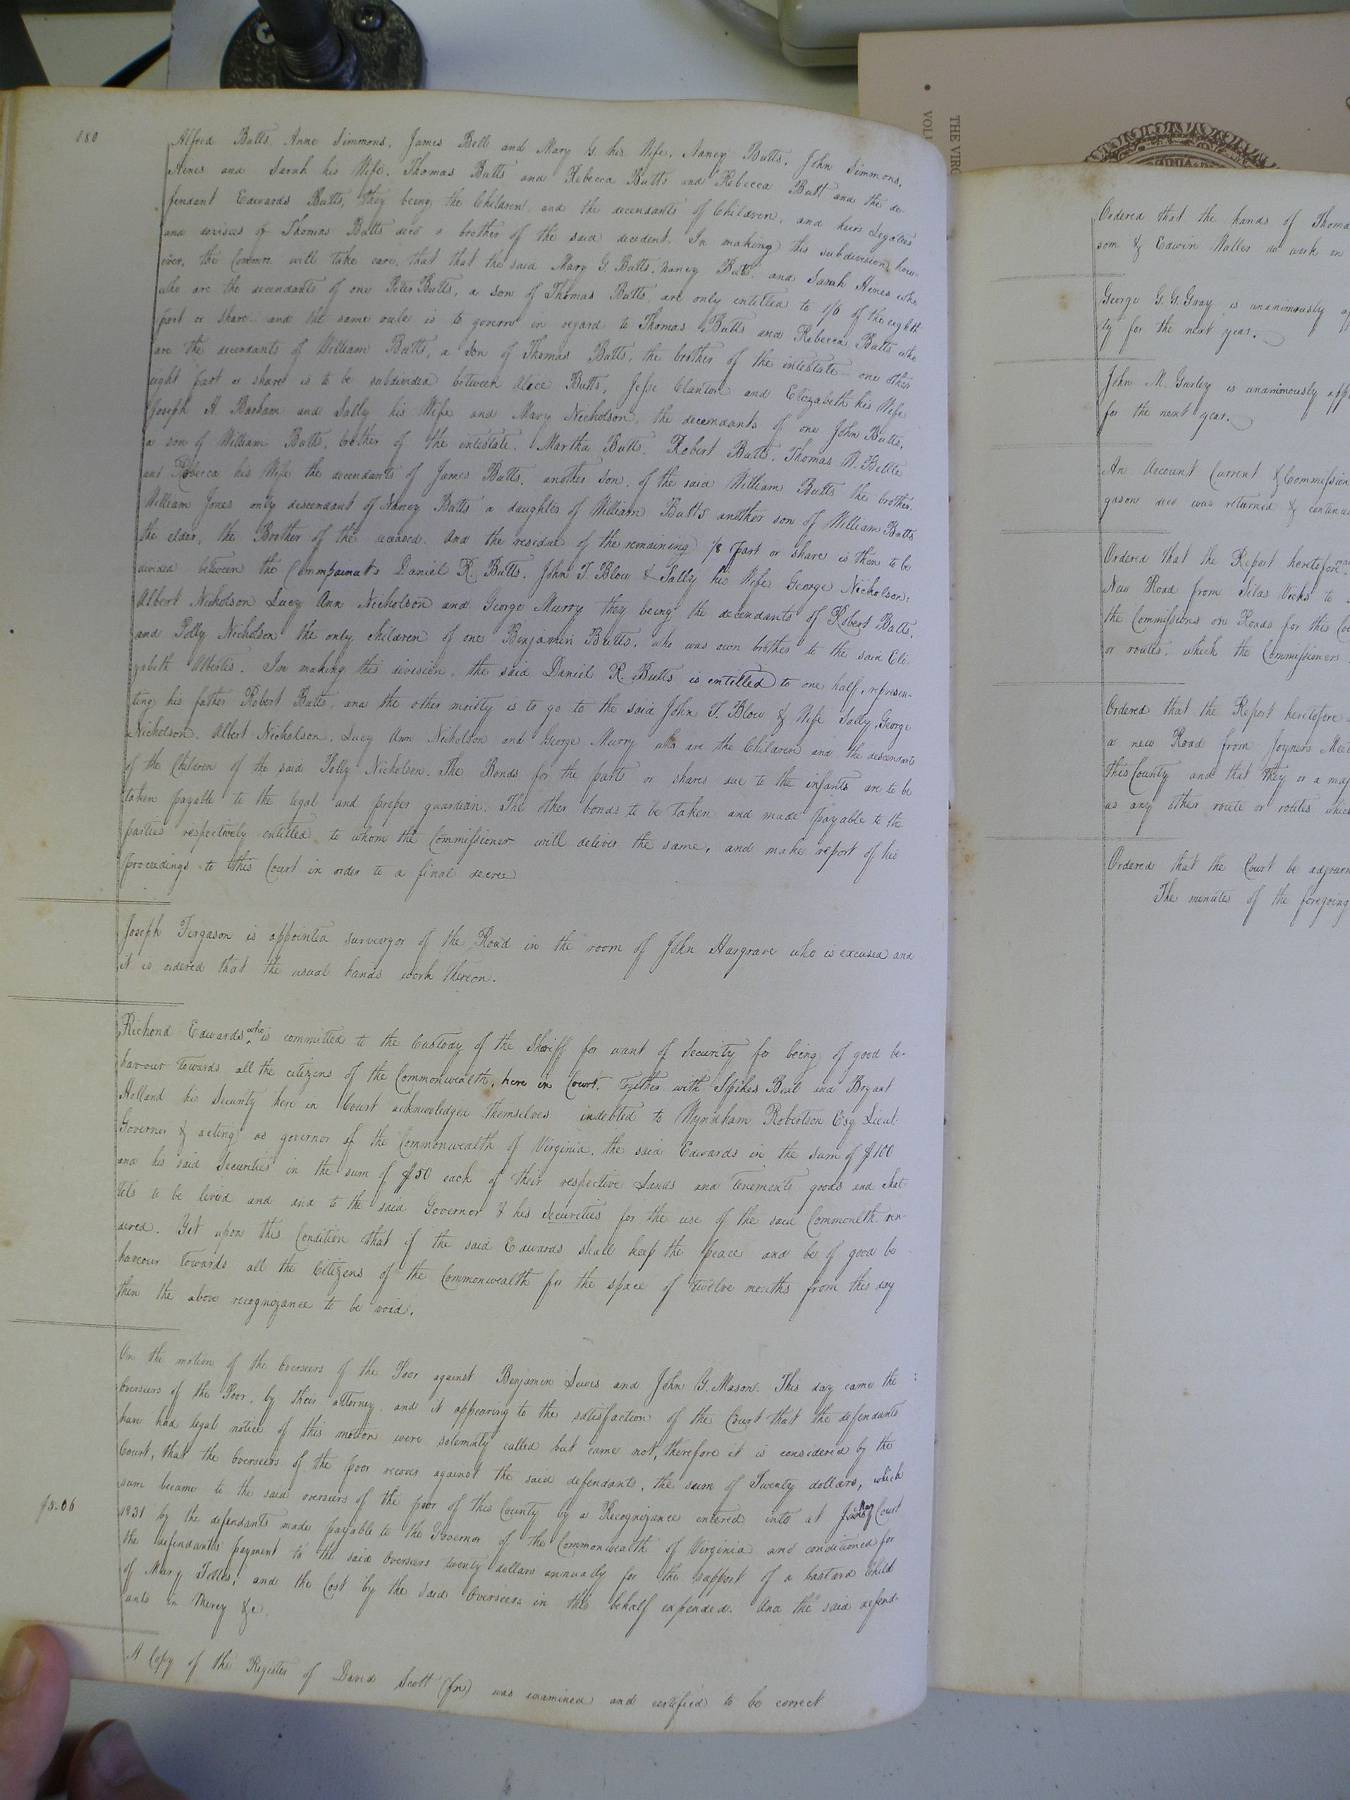 180
Alfred Butts, Anne Simmons, James Bell and Mary G. his Wife, Nancy Butts, John Simmons,
Hines and Sarah his Wife, Thomas Butts and Rebecca Butts and Rebecca Butt and the de-
fendant Edwards Butts, they being the Children and the decendants of Children, and heirs Legatees
and devisees of Thomas Butts decd a brother of the said decedent. In making this subdivision, how-
ever, the Commr. will take care, that that the said Mary G. Butts, Nancy Butts and Sarah Hines who
who are the decendants of one Peter Butts, a son of Thomas Butts, are only entitled to 1/6 of the eighth
part or share and the same rule is to govern in regard to Thomas Butts and Rebecca Butts who
are the decendants of William Butts, a son of Thomas Butts, the brother of the intestate one other
eight part or share is to be subdivided between Alice Butts, Jesse Clanton and Elizabeth his Wife
Joseph H. Barham and Sally his Wife and Mary Nicholson, the decendants of one John Butts,
a son of William Butts, brother of the intestate. Martha Butts, Robert Butts, Thomas W. Bittle
and Rebecca his Wife the decendants of James Butts, another son, of the said William Butts the brother,
William Jones only descendant of Nancy Butts a daughter of William Butts another son of William Butts
the elder, the Brother of the deceased. And the residue of the remaining 1/8 part or share is then to be
divided between the Complainants Daniel R. Butts, John T. Blow & Sally his Wife George Nicholson,
Albert Nicholson Lucy Ann Nicholson and George Murry they being the decendants of Robert Butts,
and Polly Nicholson the only children of one Benjamin Butts, who was own brother to the said Eli-
zabeth Alberties. In making this division, the said Daniel R. Butts is entitled to one half, represen-
ting his father Robert Butts, and the other moiety is to go to the said John T. Blow & Wife Sally, George
Nicholson, Albert Nicholson, Lucy Ann Nicholson and George Murry who are the Children and the descendants
of the Children of the said Polly Nicholson. The Bonds for the parts or shares due to the infants are to be
taken payable to the legal and proper guardian. The other bonds to be taken and made payable to the
parties respectively entitled to whom the Commissioner will deliver the same, and make report of his
proceedings to this Court in order to a final decree
Joseph Fergason is appointed surveyor of the Road in the room of John Hargrave who is excused and
it is ordered that the usual hands work thereon.
Richard Edwards who is committed to the Custody of the Sheriff for want of Security for being of good be-
haviour towards all the citizens of the Commonwealth, here in Court, together with Spikes Beal and Bryant
Holland his Security here in Court acknowledged themselves indebted to Wyndham Robertson Esq Lieut.
Governor & acting as governor of the Commonwealth of Virginia, the said Edwards in the sum of $100
and his said Securities in the sum of $50 each of their respective Lands and Tenements goods and Chat
tels to be levied and and to the said Governor & his Securities for the use of the said Commonlth ren-
dered. Yet upon this Condition that if the said Edwards shall keep the peace and be of good be
haviour towards all the Citizens of the Commonwealth for the space of twelve months from this day
then the above recognizance to be void.
On the motion of the Overseers of the Poor against Benjamin Lewis and John G. Mason. This day came the
Overseers of the Poor, by their attorney, and it appearing to the satisfaction of the Court that the defendants
have had legal notice of this motion were solemnly called but came not, therefore it is considered by the
Court, that the Overseers of the poor recover against the said defendants, the sum of Twenty dollars, which
sum became to the said overseers of the poor of this County by a Recognizance entered into at May Court
1831 by the defendants made payable to the Governor of the Commonwealth of Virginia and conditioned for
the defendants payment to the said Overseers twenty dollars annually for the support of a bastard Child
of Mary, and the Cost by the said Overseers in this behalf expended. And the said defend-
ants in Mercy &c.
A Copy of the Register of David Scott (fn) was examined and certified to be correct
THE VIRG
VOL
Ordered that the hands of Thoma
som & Edwin Waller do work on
George G. G. Gray is unanimously ap
ty for the next year.
John M. Gurley is unanimously app
for the next year.
An Account Current & Commission
gason decd was returned & continu
Ordered that the Report heretofore
New Road from Silas Vicks to
the Commissions on Roads for this Co
or routes, which the Commissioners
Ordered that the Report heretofore
a new Road from Joyners Meet
this County and that they or a maj
as any other route or routes which
Ordered that the Court be adjourn
The minutes of the foregoing